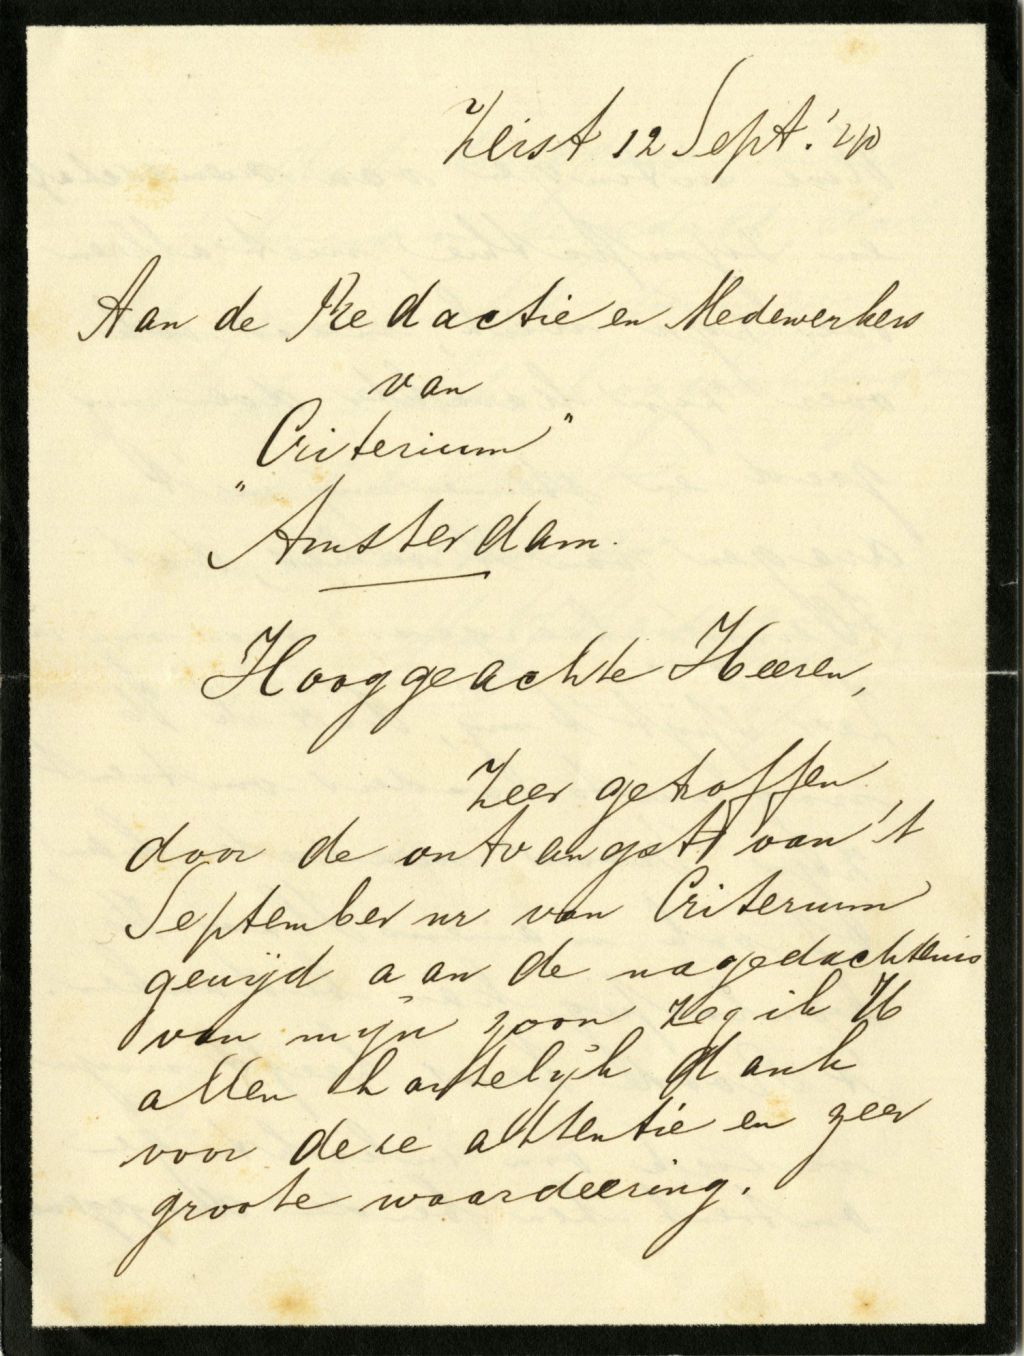 Zeist 12 Sept. '40
Aan de Redactie en Medewerkers
van
„Criterium”
Amsterdam.
Hooggeachte Heeren,
Zeer getroffen
door de ontvangst van 't
September nr van Criterium
gewijd aan de nagedachtenis
van mijn zoon zeg ik U
allen hartelijk dank
voor deze attentie en zeer
groote waardeering.